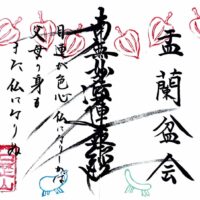 盂蘭盆会
南無妙法蓮華経
目連が色心仏になりしかば
父母の身も
また仏になりぬ